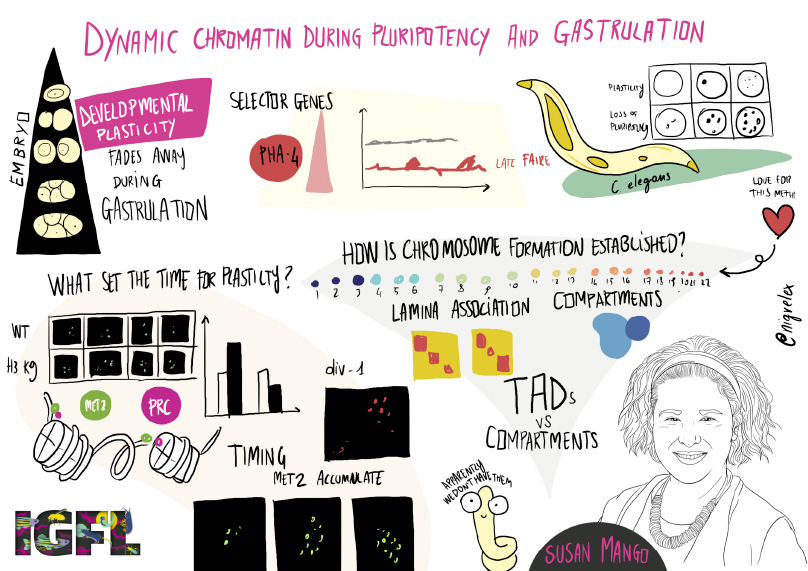 DYNAMIC CHROMATIN DURING PLURIPOTENCY AND GASTRULATION
EMBRYO
DEVELOPMENTAL
PLASTICITY
FADES AWAY
DURING
GASTRULATION
SELECTOR GENES
PHA-4
LATE FAIRE
PLASTICITY
LOSS OF
PLURIPOTENCY
C elegans
LOVE FOR
THIS METH!
HOW IS CHROMOSOME FORMATION ESTABLISHED?
1 2 3 4 5 6 7 8 9 10 11 12 13 14 15 16 17 18 19 20 21 22
LAMINA ASSOCIATION
COMPARTMENTS
TADs
VS
COMPARTMENTS
@nigrelex
WHAT SET THE TIME FOR PLASTICITY?
WT
H3 K9
MET2
PRC
div-1
TIMING
MET2 ACCUMULATE
APPARENTLY
WE DON'T HAVE THEM
SUSAN MANGO
IGFL